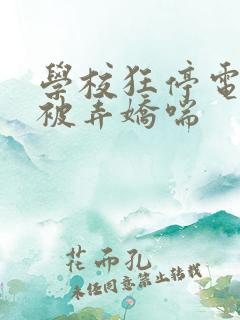 學校狂停電
被弄嬌喘
花而孔
未經同意禁止轉載